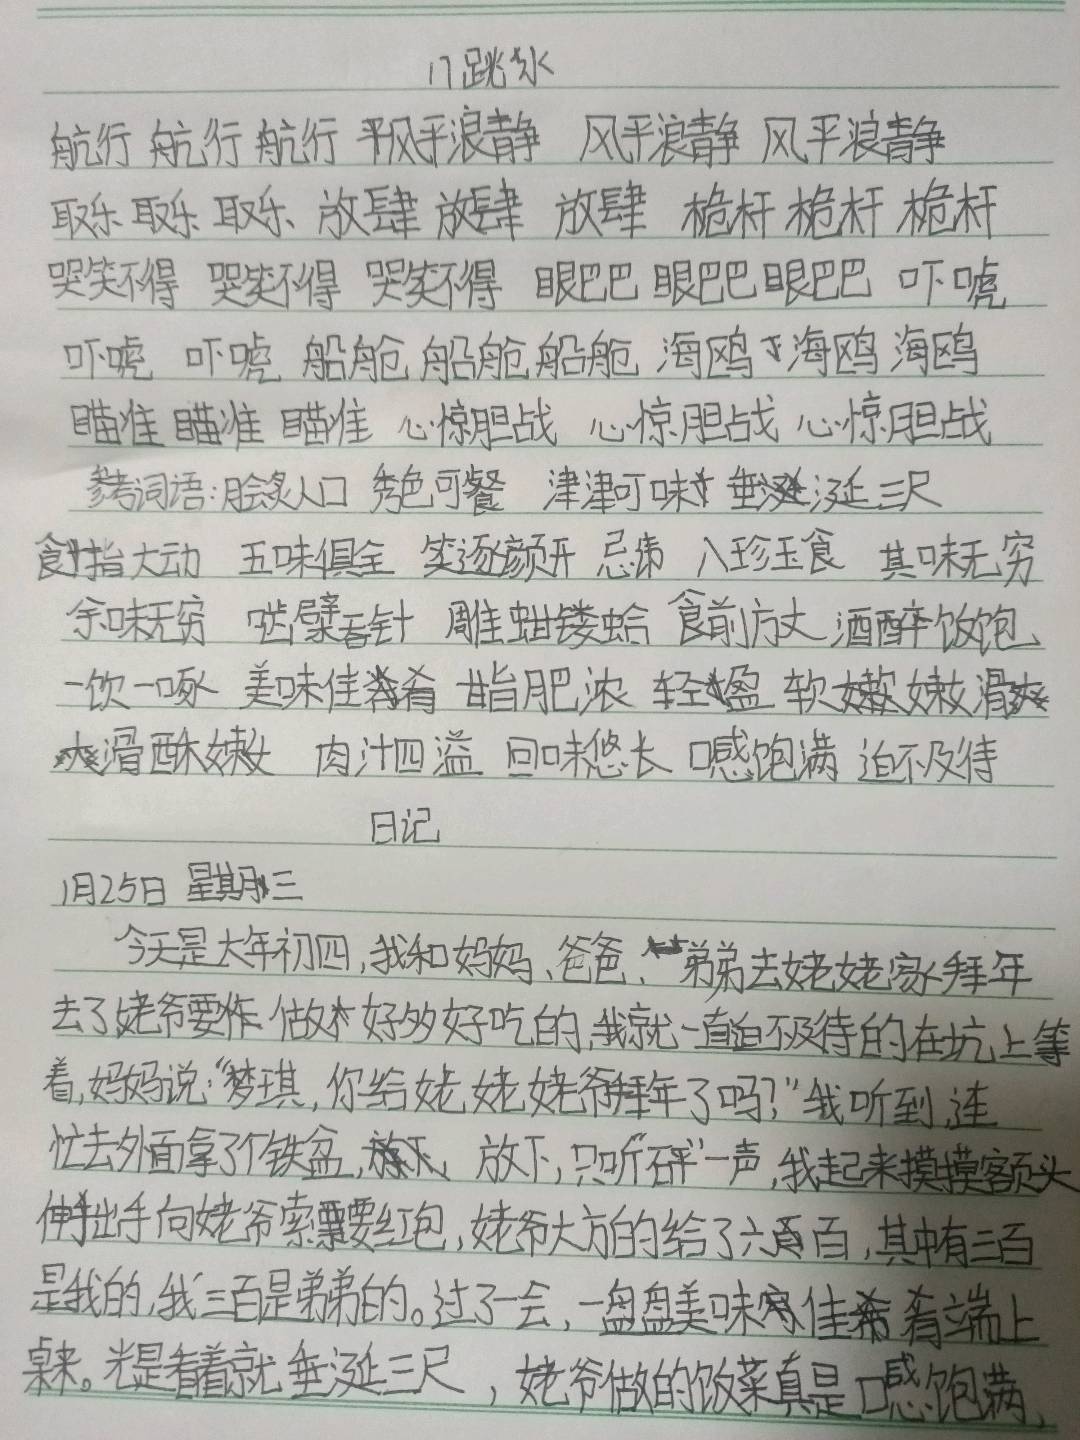 17跳水
航行 航行 航行 风平浪静 风平浪静 风平浪静
取乐 取乐 取乐 放肆 放肆 放肆 桅杆 桅杆 桅杆
哭笑不得 哭笑不得 哭笑不得 眼巴巴 眼巴巴 眼巴巴 吓唬
吓唬 吓唬 船舱 船舱 船舱 海鸥 海鸥 海鸥
瞄准 瞄准 瞄准 心惊胆战 心惊胆战 心惊胆战
参考词语:脍炙人口 秀色可餐 津津可味 垂涎三尺
食指大动 五味俱全 笑逐颜开 忌讳 八珍玉食 其味无穷
余味无穷 吞针 雕蚶镂蛤 食前方丈 酒醉饭饱
一饮一啄 美味佳肴 甘脂肥浓 轻盈 软嫩 嫩滑
滑酥嫩 肉汁四溢 回味悠长 口感饱满 迫不及待
日记
1月25日 星期三
今天是大年初四,我和妈妈、爸爸、弟弟去姥姥家拜年
去了姥爷要做好多好吃的,我就一直迫不及待的在坑上等
着,妈妈说:“梦琪,你给姥姥姥爷拜年了吗?”我听到,连
忙去外面拿了个铁盆,放下,只听“砰”一声,我起来摸摸额头
伸出手向姥爷索要红包,姥爷大方的给了六百,其中有三百
是我的,我三百是弟弟的。过了一会,一盘盘美味佳肴端上
桌来。光是看着就垂涎三尺,姥爷做的饭菜真是口感饱满,